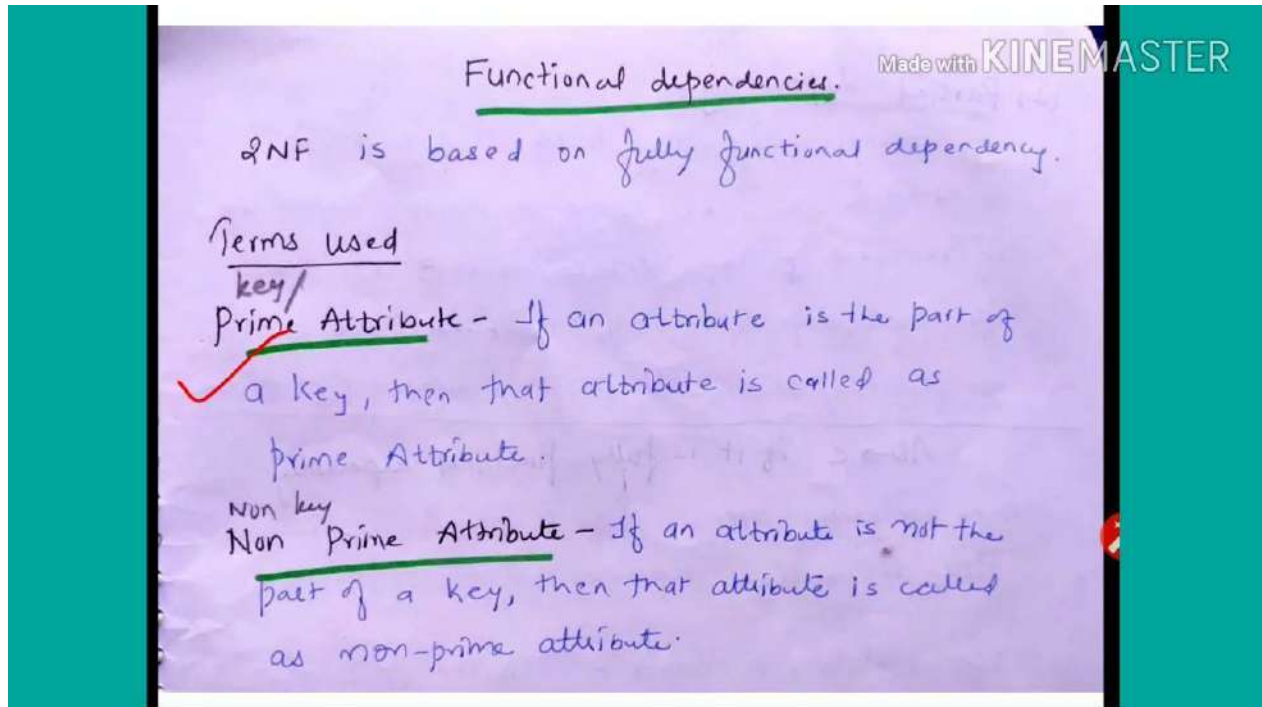 Made with KINEMASTER
Functional dependencies.
2NF is based on fully functional dependency.
Terms used
key/
Prime Attribute - If an attribute is the part of
a key, then that attribute is called as
prime Attribute.
Non key
Non Prime Attribute - If an attribute is not the
part of a key, then that attribute is called
as non-prime attribute.